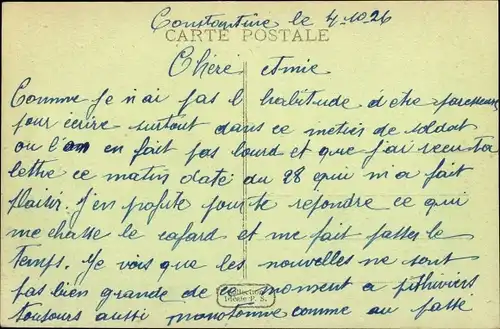 Constantine le 4-10-26
CARTE POSTALE
Chère amie
Comme je n'ai pas l habitude d'etre paresseux
pour écrire surtout dans ce metier de soldat
ou l'on en fait pas lourd et que j'ai recu ta
lettre ce matin daté du 28 qui m'a fait
plaisir. J'en profite pour te repondre ce qui
me chasse le cafard et me fait passer le
temps. Je vois que les nouvelles ne sont
pas bien grande de ce moment a pithiviers
Collection
Idéale P. S.
toujours aussi monotonne comme au